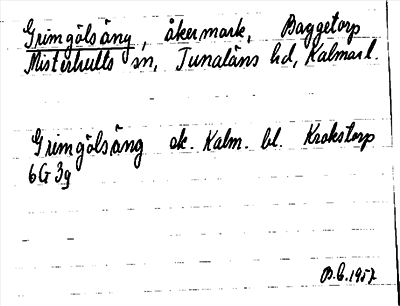 Grimgölsäng, åkermark, Baggetorp
Misterhults sn, Tunaläns hd, Kalmar l.
Grimgölsäng ek. Kalm. bl. Krokstorp
6G 3g
B.E. 1957